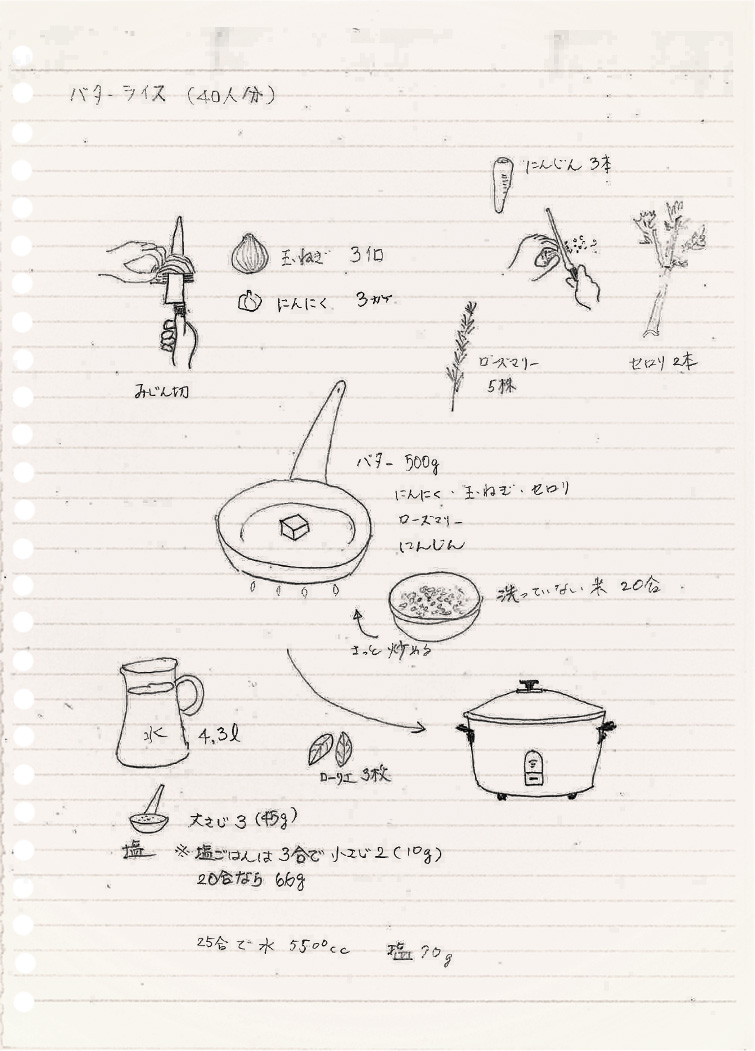 バターライス (40人分)
にんじん 3本
玉ねぎ 3コ
にんにく 3カケ
みじん切
ローズマリー
5株
セロリ 2本
バター 500g
にんにく・玉ねぎ・セロリ
ローズマリー
にんじん
洗っていない米 20合
さっと炒める
水 4.3ℓ
ローリエ 3枚
大さじ3 (45g)
塩 ※塩ごはんは3合で小さじ2(10g)
20合なら 66g
25合で水 5500cc 塩 70g